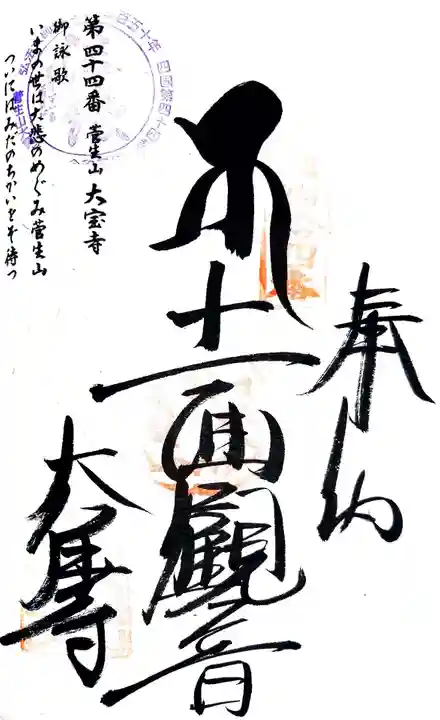 奉納
十一面觀音
大寳寺
第四十四番 菅生山 大宝寺
御詠歌
いまの世は大悲のめぐみ菅生山
ついにはみだのちかいをぞ待つ